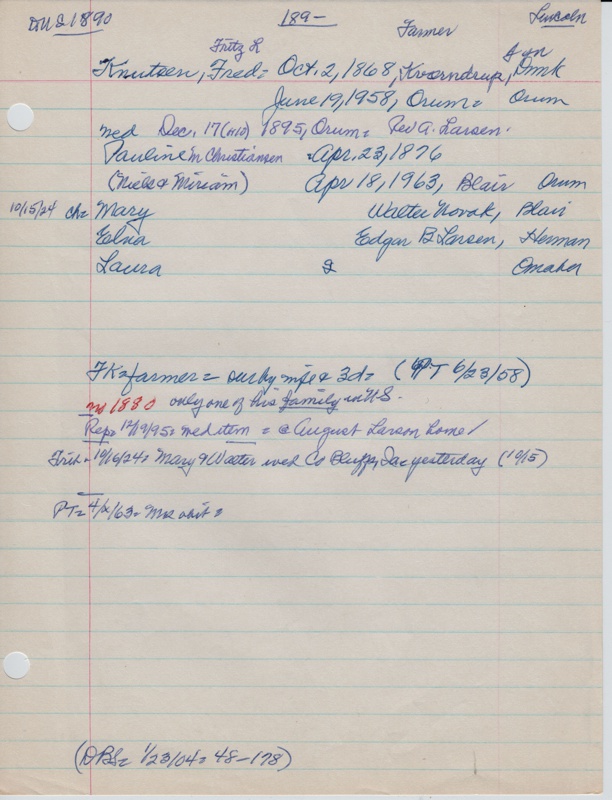 1890 189- Lincoln
Fritz L Farmer
Knutsen, Fred= Oct. 2, 1868, Dmk
June 19, 1958, Orum= Orum
med Dec. 17 (H10) 1895, Orum= Rev A. Larsen.
Pauline M Christiansen Apr. 23, 1876
(Niels & Miriam) Apr 18, 1963, Blair Orum
10/15/24 ch= Mary Walter Novak, Blair
Elna Edgar B Larsen, Herman
Laura Omaha
FK=farmer= sur by wife & 3d= (PT 6/23/58)
only one of his family in U.S.
Rep= 12/19/95= med item = @ August Larson home/
10/16/24= Mary & Walter wed Co Bluffs, Ia yesterday (10/15)
PT= 4/ /63= Mrs obit=
(DBS= 1/23/04= 48-178)